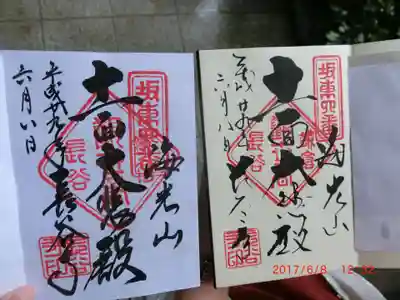 坂東四番
海光山
十一面大悲殿
長谷寺
平成廿九年
六月八日
坂東四番
海光山
十一面大悲殿
長谷
長谷寺
平成廿九年
六月八日
2017/6/8